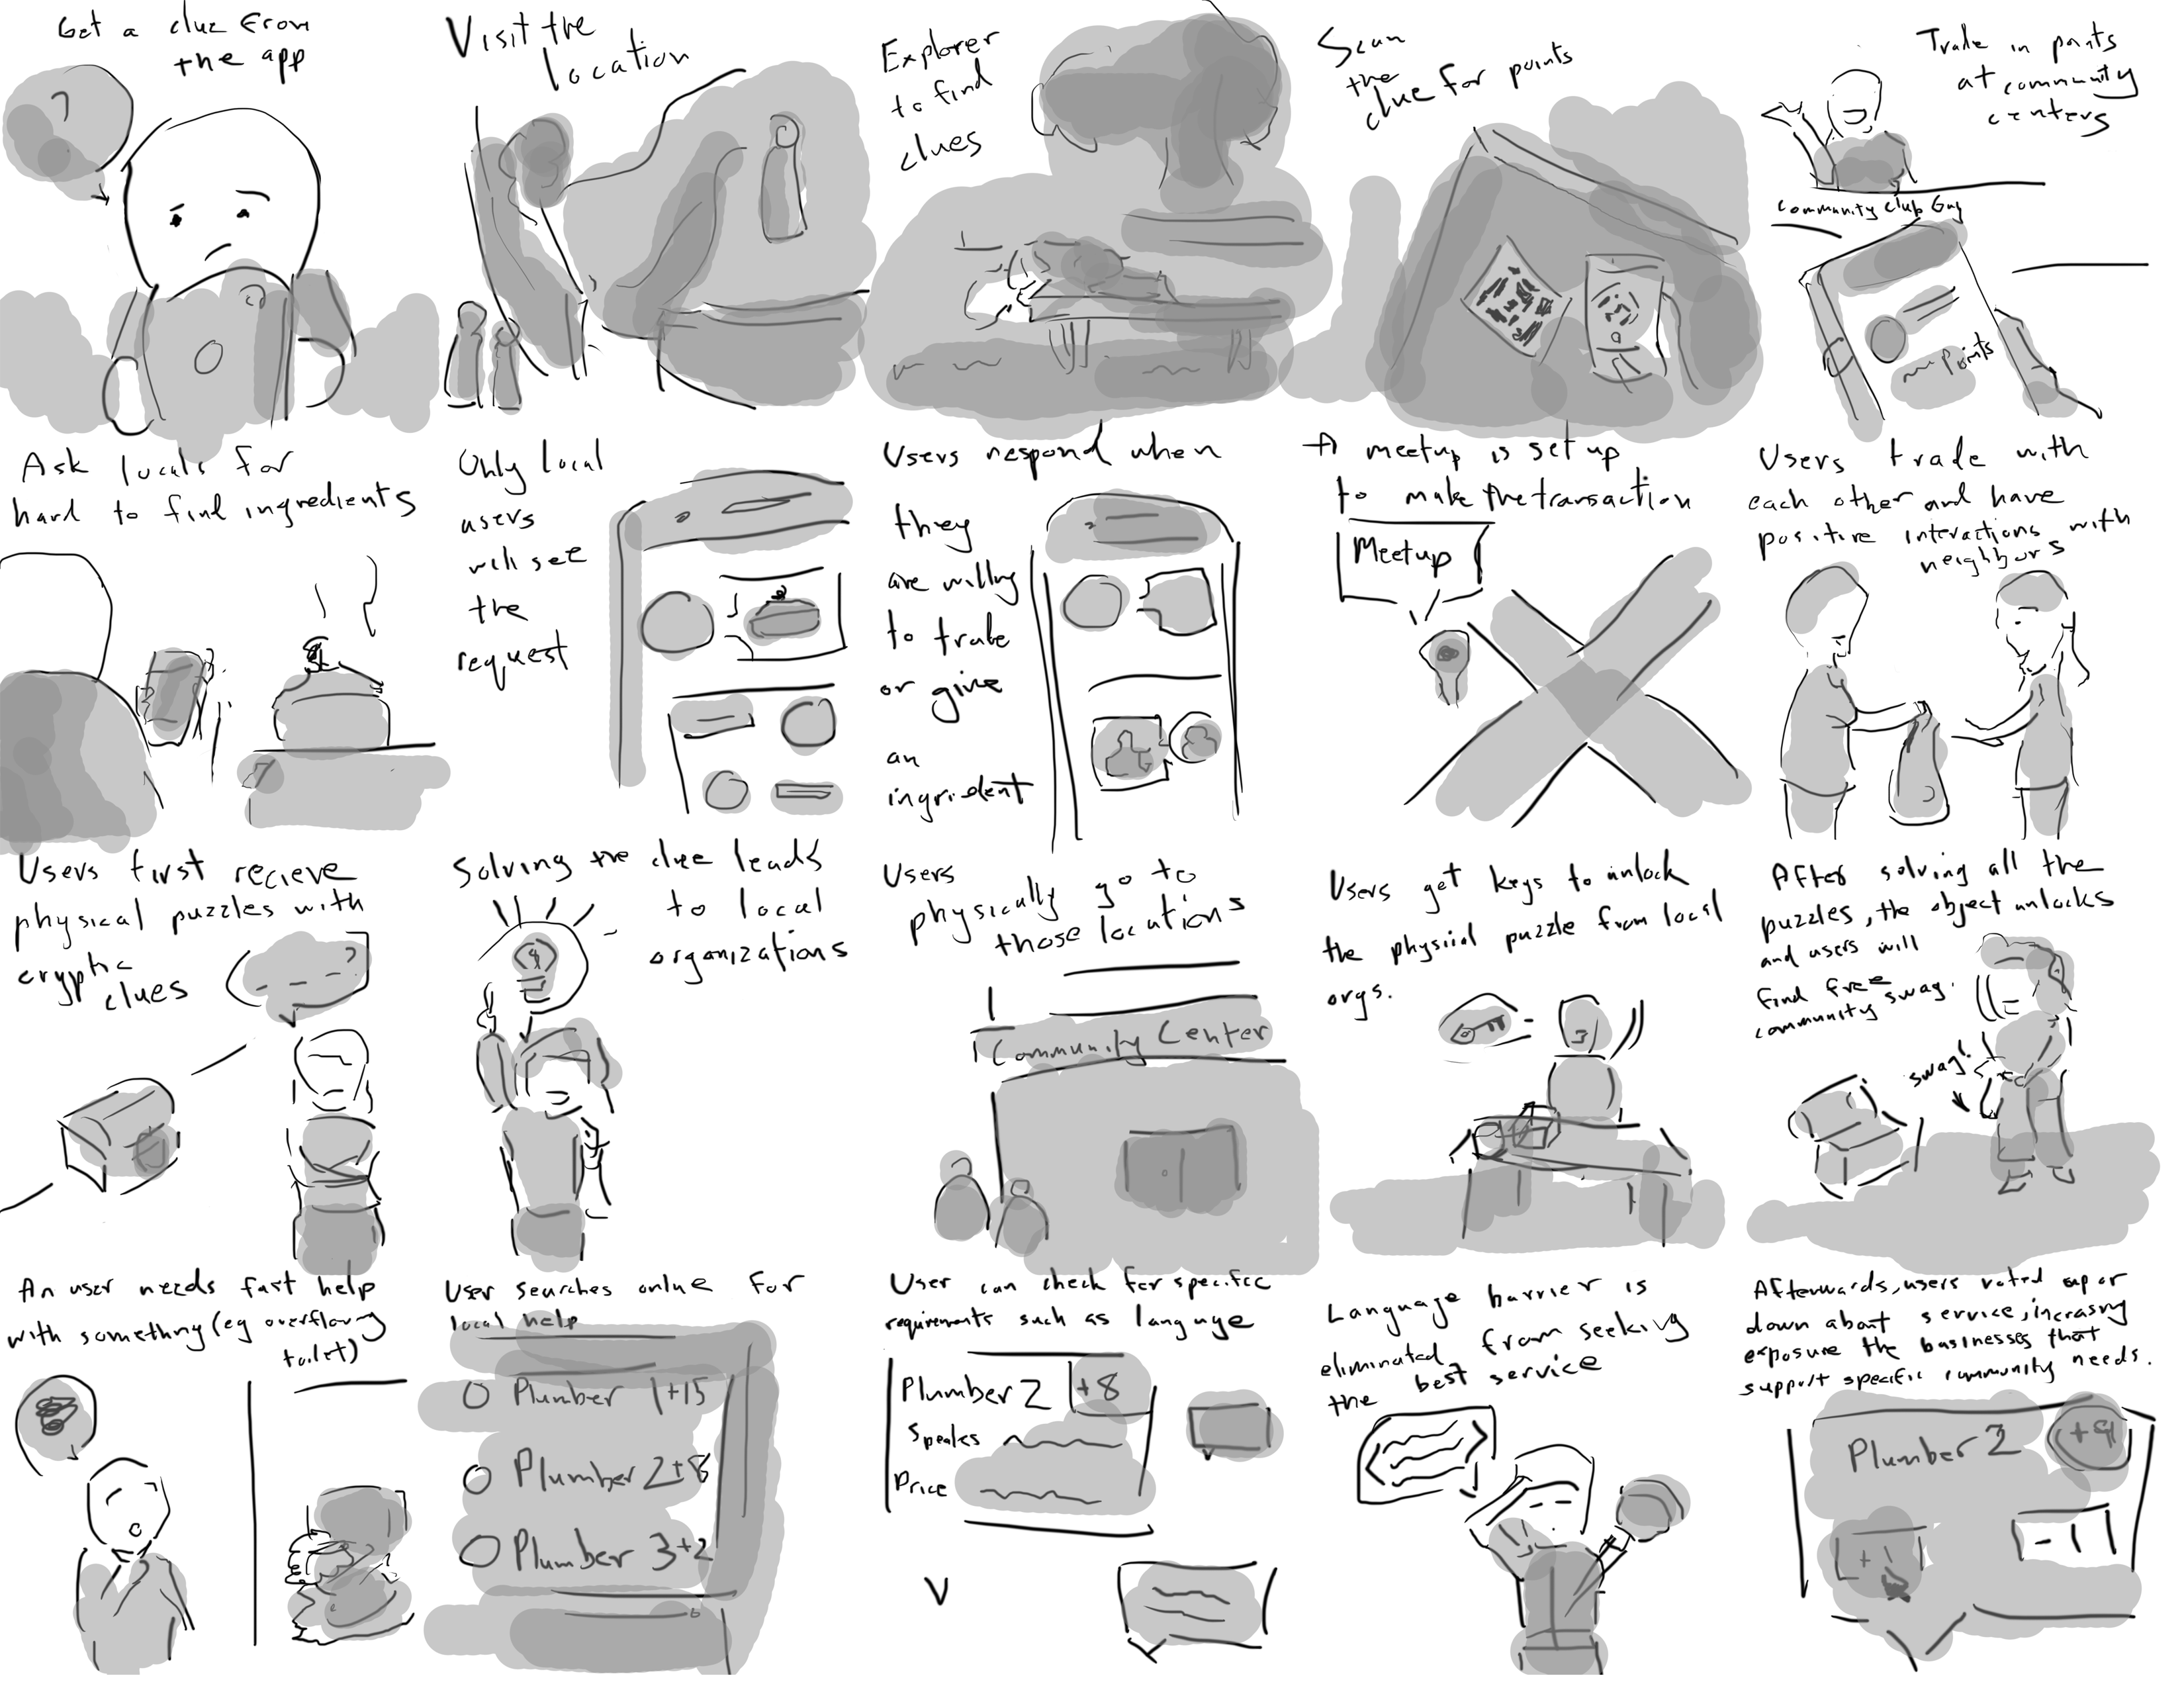 Get a clue from
the app
?
Visit the
location
Explorer
to find
clues
Scan
the
clue for points
Trade in points
at community
centers
Community Club Guy
Points
Ask locals for
hard to find ingredients
Only local
users
will see
the
request
Users respond when
they
are willing
to trade
or give
an
ingridient
A meetup is set up
to make the transaction
Meetup
Users trade with
each other and have
positive interactions with
neighbors
Users first recieve
physical puzzles with
cryptic
clues
?
Solving the clue leads
to local
organizations
Users
physically go to
those locations
Community Center
Users get keys to unlock
the physical puzzle from local
orgs.
After solving all the
puzzles, the object unlocks
and users will
find free
community swag.
swag!
An user needs fast help
with something (eg overflowing
toilet)
User searches online for
local help
Plumber 1 +15
Plumber 2 +8
Plumber 3 +2
User can check for specific
requirements such as languge
Plumber 2 +8
Speaks
Price
Language barrier is
eliminated from seeking
the best service
Afterwards, users voted up or
down about service, increasing
exposure the businesses that
support specific community needs.
Plumber 2 +9
+1
-1